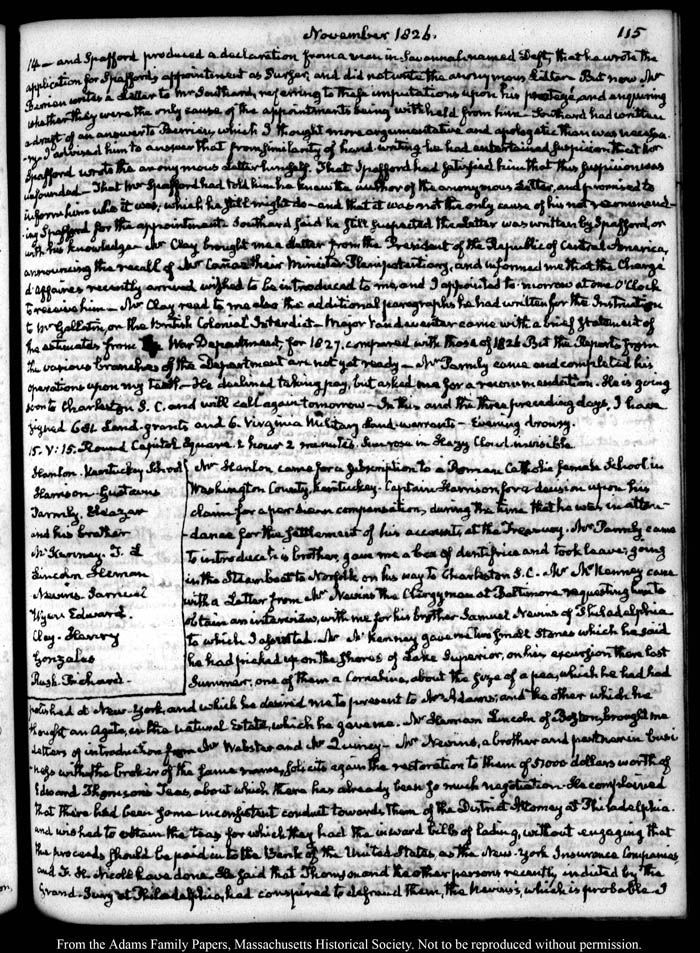 November 1826.
115
14 — and Spafford produced a declaration from a man in Savannah named Deft, that he wrote the
application for Spafford's appointment as Surgeon and did not write the anonymous Letter. But now Mr
Berrien writes a Letter to Mr Southard, referring to these imputations upon his protégé, and enquiring
whether they were the only cause of the appointments being withheld from him — Southard had written
a draft of an answer to Berrien, which I thought more argumentative and apologetic than was necessa-
-ry. I advised him to answer that from similarity of hand-writing he had entertained suspicion that Mr
Spafford wrote the anonymous Letter himself. That Spafford had satisfied him that this suspicion was
unfounded — That Mr Spafford had told him he knew the author of the anonymous Letter, and promised to
inform him who it was; which he still might do — and that it was not the only cause of his not recommend-
-ing Spafford for the appointment. Southard said he still suspected the Letter was written by Spafford, or
with his knowledge — Mr Clay brought me a Letter from the President of the Republic of Central America,
announcing the recall of Mr Canas their Minister Plenipotentiary, and informed me that the Chargé
d'Affaires recently arrived wished to be introduced to me, and I appointed to-morrow at one O'Clock
to receive him — Mr Clay read to me also the additional paragraphs he had written for the Instruction
to Mr Gallatin, on the British Colonial Interdict — Major Vandeventer came with a brief Statement of
the estimates from War Department, for 1827. compared with those of 1826 But the Reports from
the various branches of the Department are not yet ready — Mr Parmly came and completed his
operations upon my teeth — He declined taking pay, but asked me for a recommendation. He is going
soon to Charleston S. C. and will call again tomorrow — In this and the three preceding days, I have
signed 601 Land-grants and 6. Virginia Military Land-warrants — Evening drowsy.
15. V: 15. Round Capitol Square. 1 hour 2 minutes. Sun rose in Hazy Cloud invisible
Hanlon. Kentucky School
Harrison Gustavus
Parmly. Eleazar
and his brother
McKenney. T. L
Lincoln Heman
Nevins. Samuel
Wyer Edward.
Clay. Henry
Gonzales
Rush. Richard.
Mr Hanlon came for a subscription to a Roman Catholic female School in
Washington County, Kentucky. Captain Harrison for a decision upon his
claim for a per diem compensation, during the time that he was in atten-
dance for the settlement of his accounts, at the Treasury. Mr Parmly came
to introduce his brother, gave me a box of dentifrice and took leave; going
in the Steam boat to Norfolk on his way to Charleston S.C. Mr McKenney came
with a Letter from Mr Nevins the Clergyman at Baltimore requesting him to
obtain an interview, with me for his brother Samuel Nevins of Philadelphia
to which I assented. Mr McKenney gave me two small stones which he said
he had picked up on the shores of Lake Superior, on his excursion there last
Summer; one of them a Cornelian, about the size of a pea, which he had had
polished at New-York, and which he desired me to present to Mrs Adams; and the other which he
thought an Agate, in the natural Estate, which he gave me. Mr Heman Lincoln of Boston, brought me
Letters of introduction from Mr Webster and Mr Quincy — Mr Nevins, a brother and partner in busi
ness with the broker of the same name, solicits again the restoration to them of 57000 dollars worth of
Edward Thomson's Teas, about which there has already been so much negotiation. He complained
that there had been some inconsistent conduct towards them of the District Attorney at Philadelphia.
and wished to obtain the teas for which they had the inward bills of lading, without engaging that
the proceeds should be paid in to the Bank of the United States, as the New-York Insurance Companies,
and F. H. Nicoll have done. He said that Thomson and the other persons recently indicted by the
Grand-Jury at Philadelphia, had conspired to defraud them, the Nevins's, which is probable. I
From the Adams Family Papers, Massachusetts Historical Society. Not to be reproduced without permission.